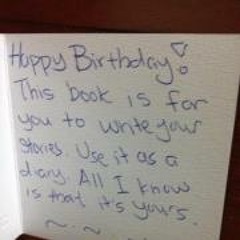 Happy Birthday!
This book is for
you to write your
stories. Use it as a
diary. All I know
is that it's yours.